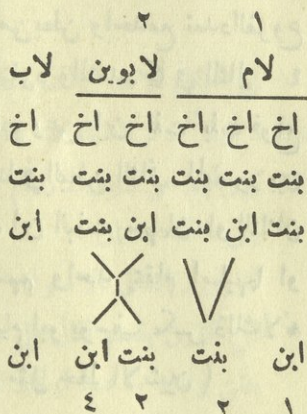 ١ ٢
لام لابوين لاب
اخ اخ اخ اخ اخ اخ
بنت بنت بنت بنت بنت بنت
بنت ابن بنت ابن بنت ابن
ابن بنت بنت ابن ابن
١ ٢ ٢ ٤